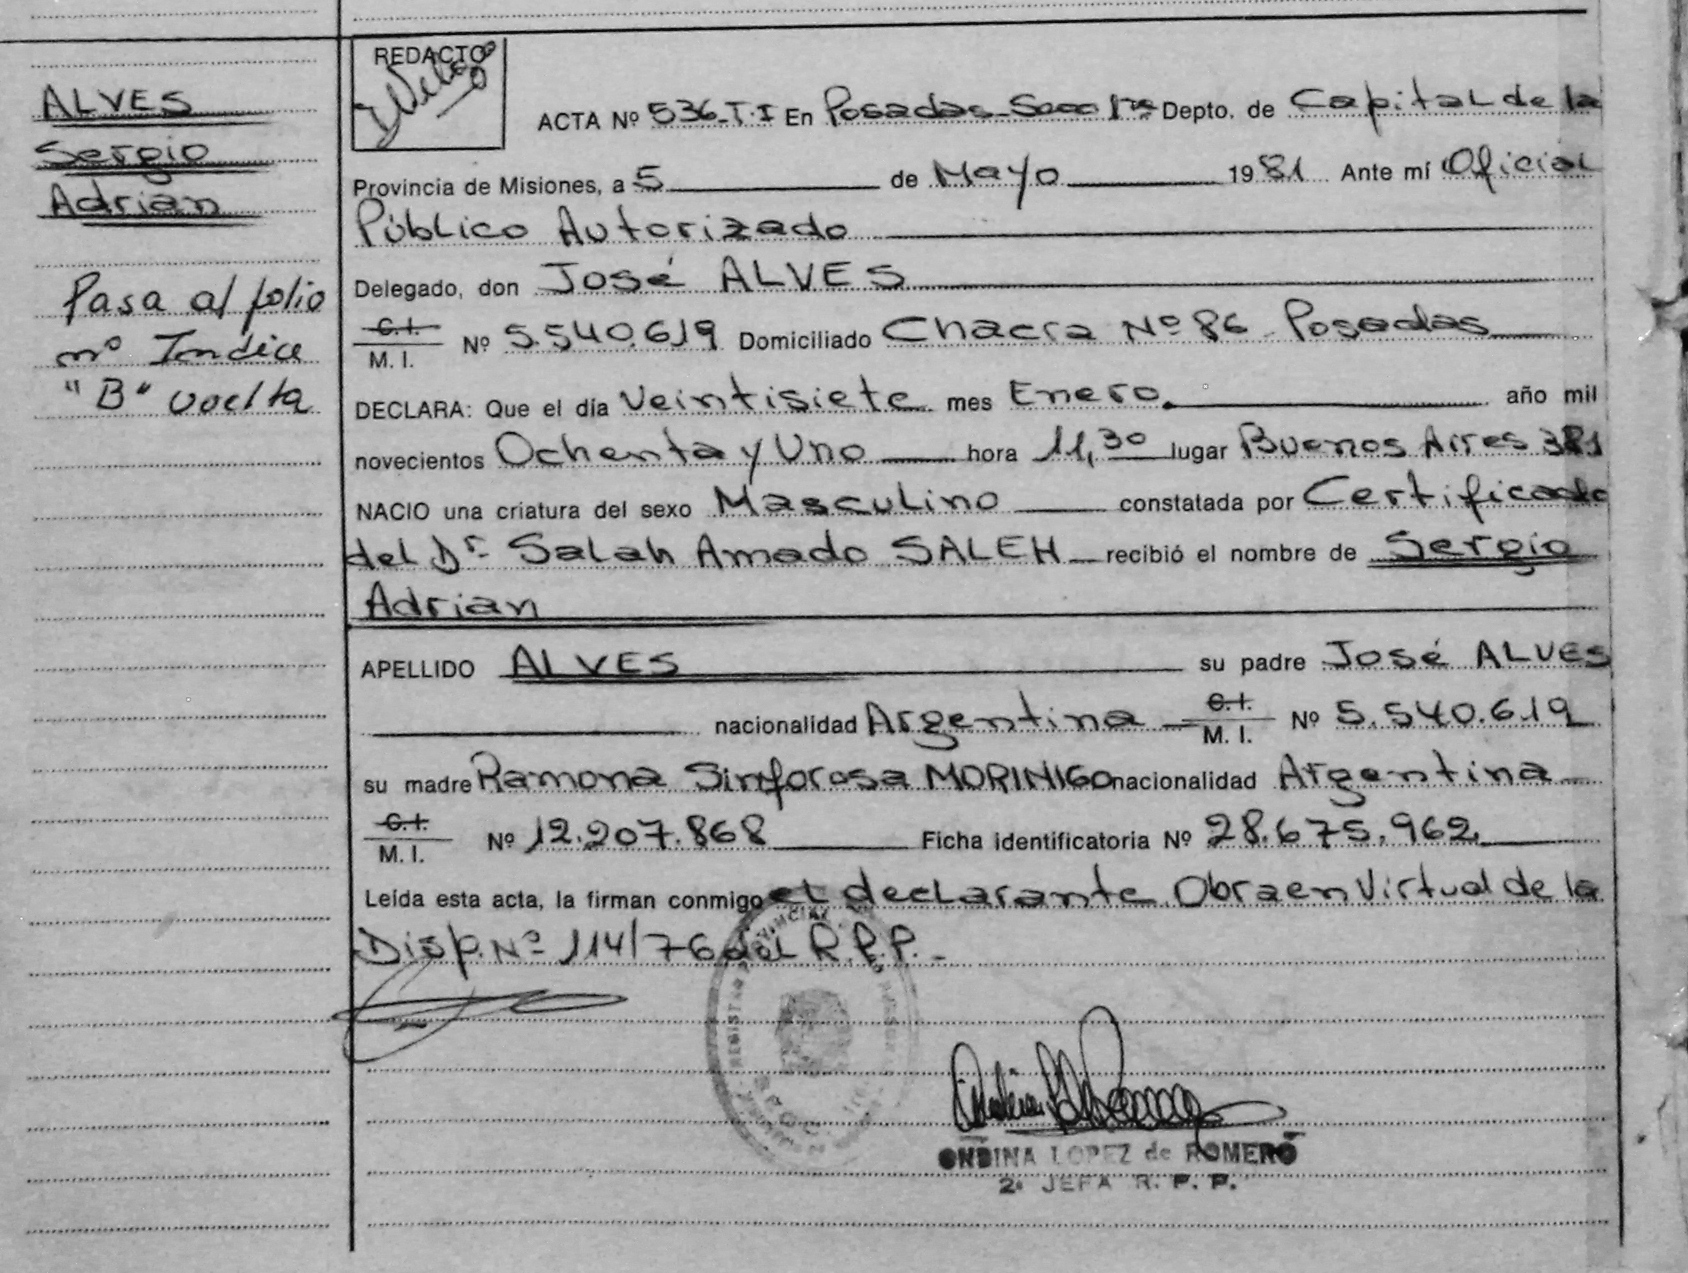 ALVES
Sergio
Adrian
Pasa al folio
nº Indice
"B" vuelta
REDACTO
ACTA Nº 536-T-I En Posadas-Secc 1ra Depto. de Capital de la
Provincia de Misiones, a 5 de Mayo 1981 Ante mí Oficial
Público Autorizado
Delegado, don José ALVES
C.I.
M. I. Nº 5.540.619 Domiciliado Chacra Nº 86 Posadas
DECLARA: Que el día Veintisiete mes Enero. año mil
novecientos Ochenta y Uno hora 11,30 lugar Buenos Aires 381
NACIO una criatura del sexo Masculino constatada por Certificado
del Dr Salah Amado SALEH recibió el nombre de Sergio
Adrian
APELLIDO ALVES su padre José ALVES
nacionalidad Argentina C.I. M. I. Nº 5.540.619
su madre Ramona Sinforosa MORINIGO nacionalidad Argentina
C.I.
M. I. Nº 12.207.868 Ficha identificatoria Nº 28.675.962
Leída esta acta, la firman conmigo el declarante Obra en Virtud de la
Disp. Nº 114/76 del R.P.P.-
ONDINA LOPEZ de ROMERO
2ª JEFA R. P. P.